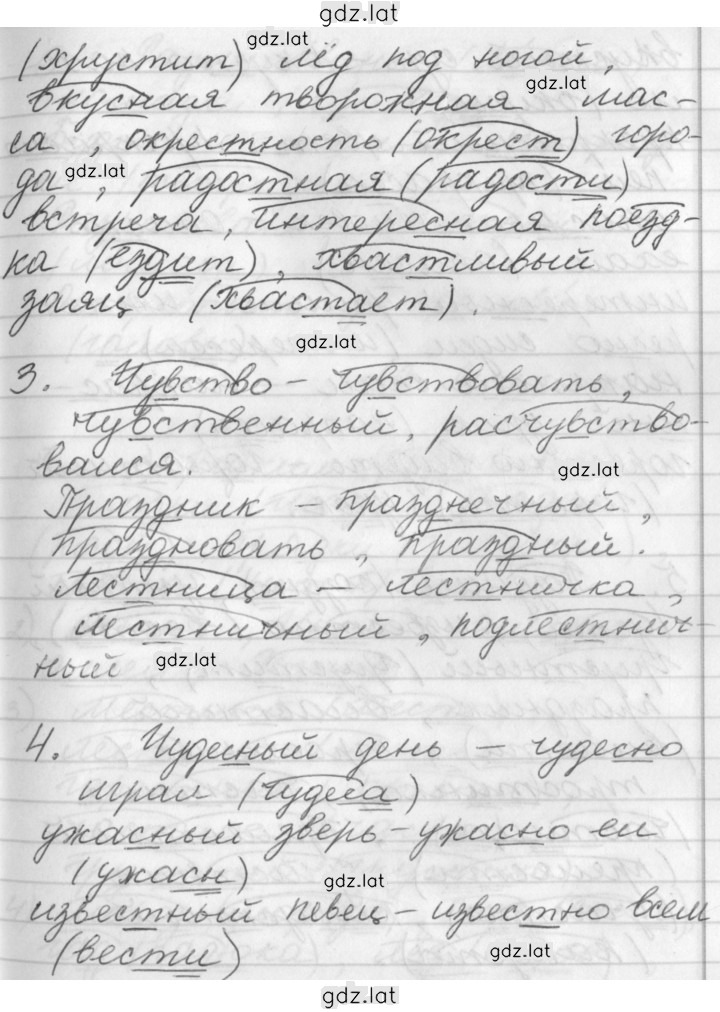 gdz.lat
(хрустит) лёд под ногой,
gdz.lat
вкусная творожная мас-
gdz.lat
са, окрестность (окрест) горо-
да, радостная (радости)
gdz.lat
встреча, интересная поезд-
ка (ездит), хвастливый
заяц (хвастает).
gdz.lat
3. Чувство – чувствовать,
чувственный, расчувство-
вался.
gdz.lat
Праздник – празднечный,
праздновать, праздный.
Лестница – лестничка,
лестничный, подлестнич-
ный
gdz.lat
4. Чудесный день – чудесно
играл (чудеса)
ужасный зверь – ужасно ел
(ужасн)
gdz.lat
известный певец – известно всем
(вести)
gdz.lat
gdz.lat